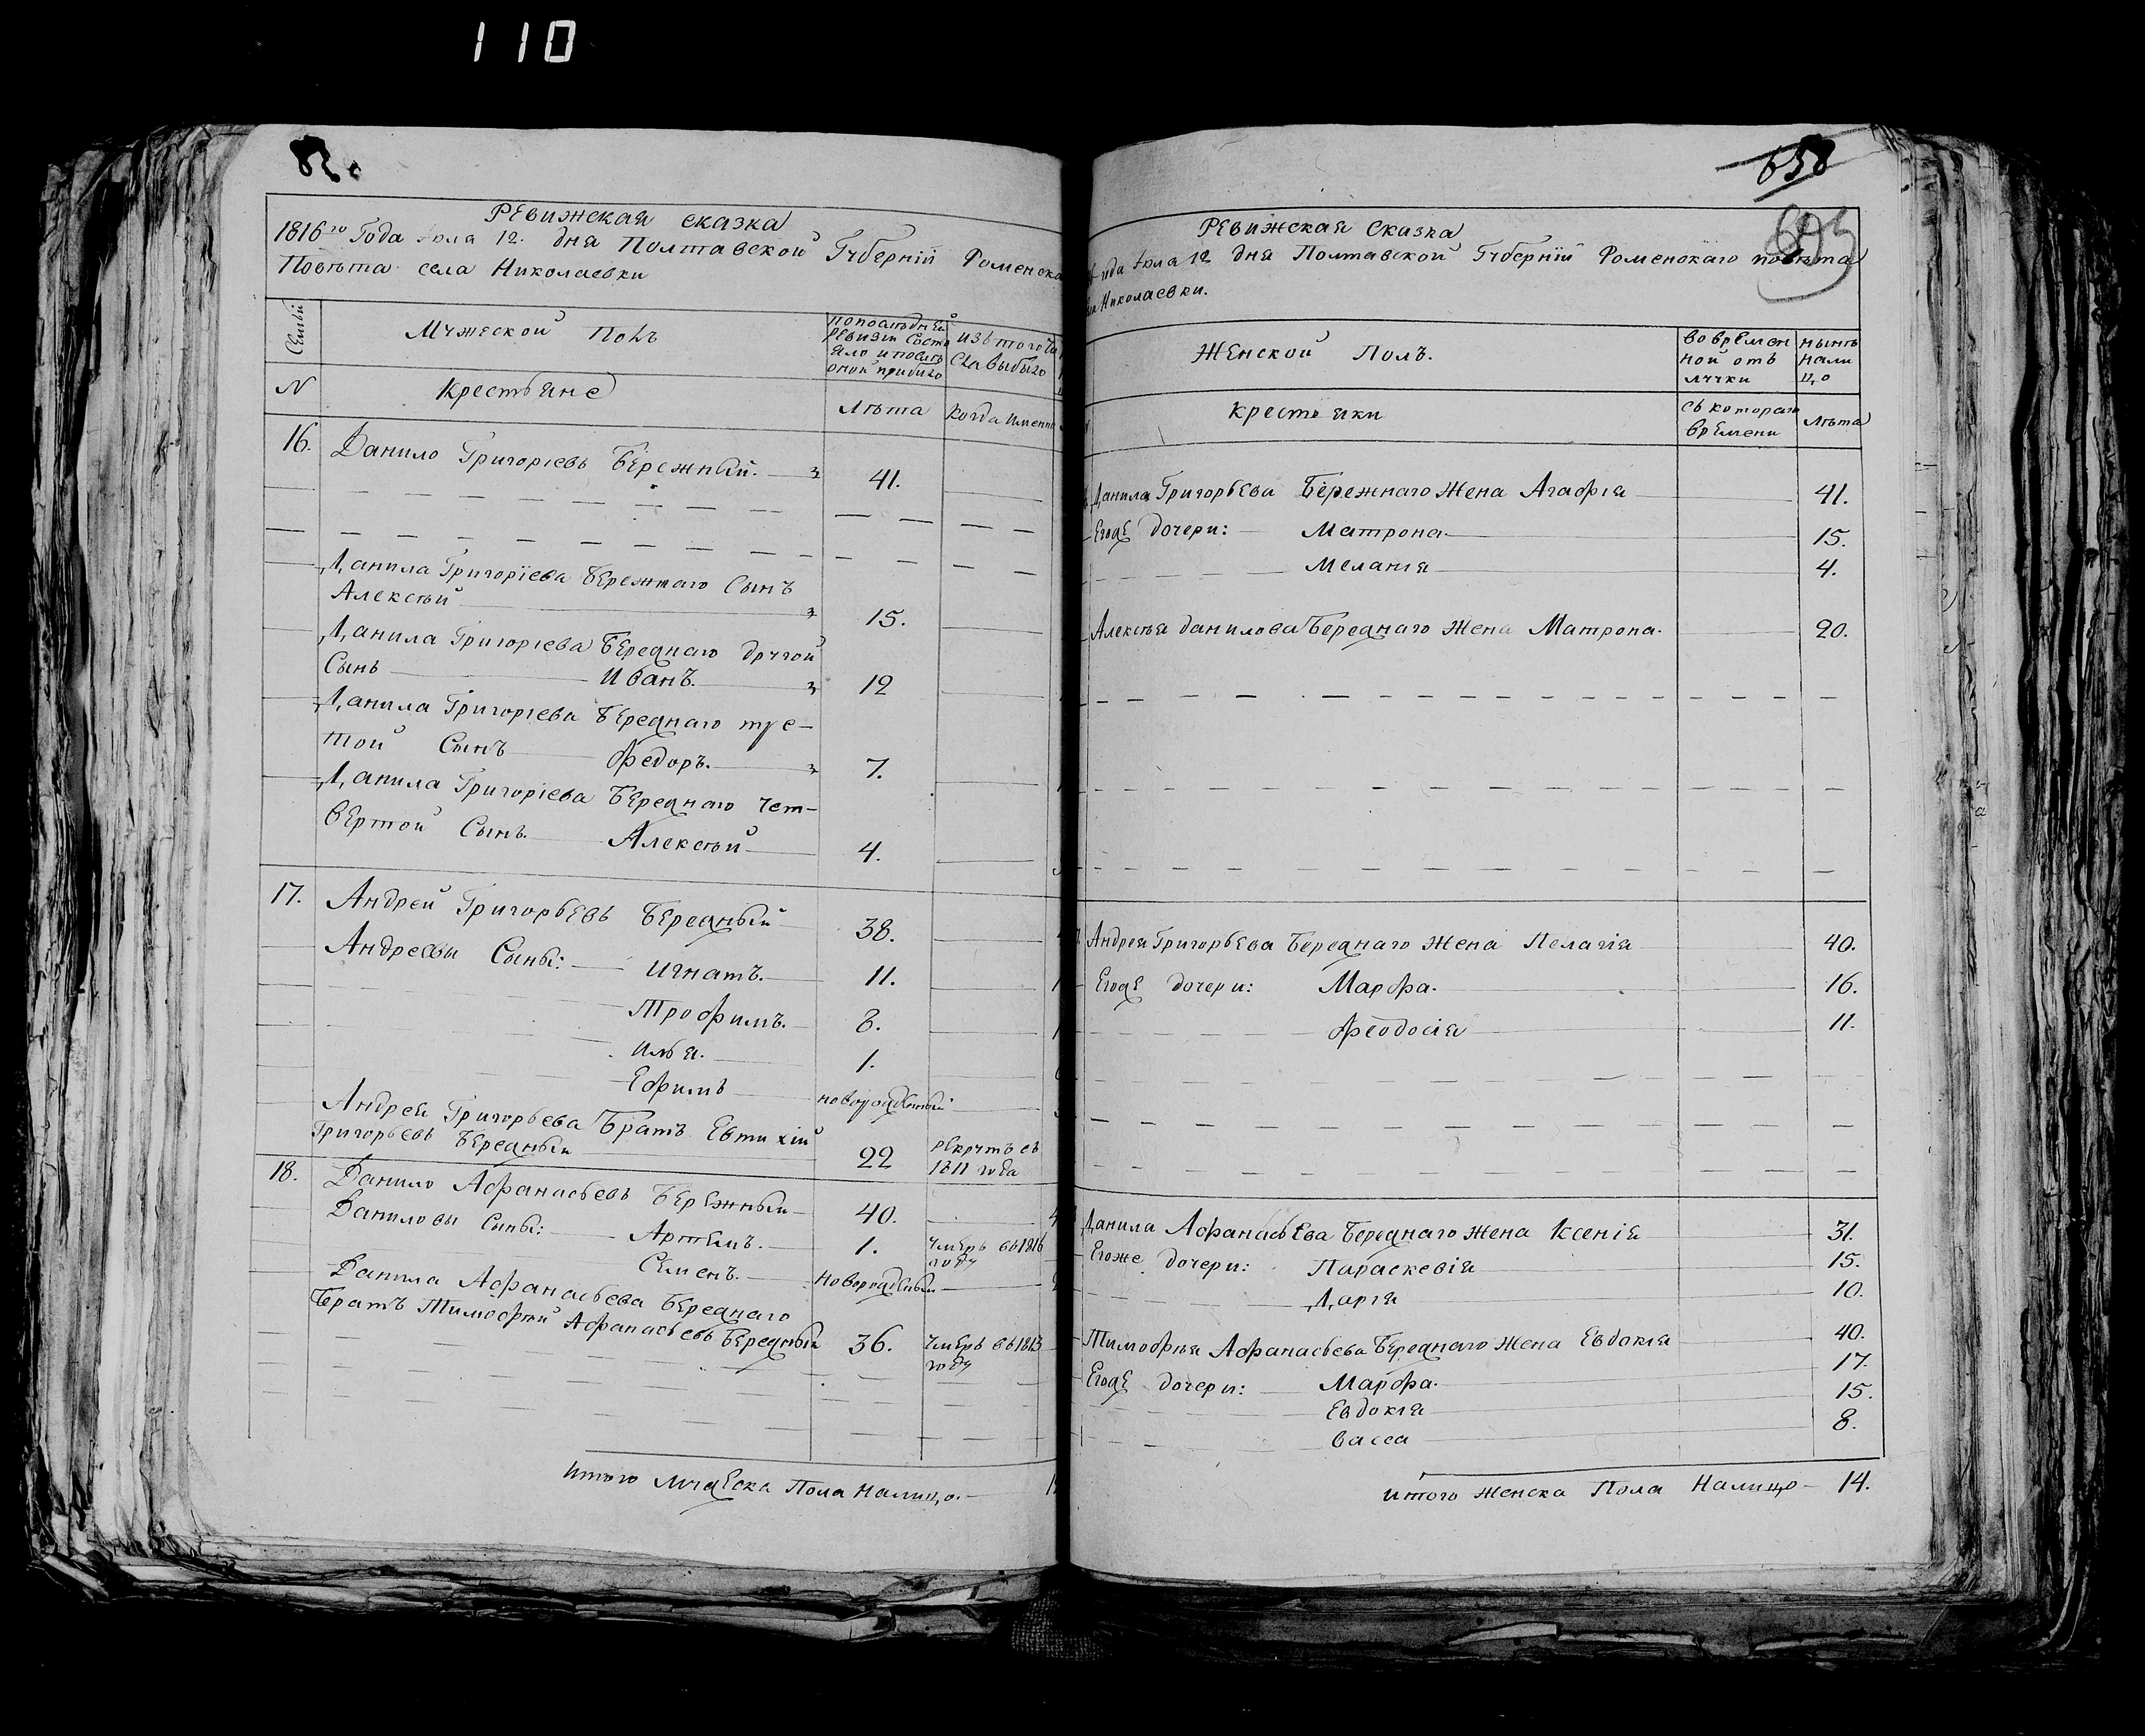 110
82.
Ревижская сказка
1816го Года Июля 12. дня Полтавской Губерніи Роменска
Повѣта села Николаевки
Семьи
Мужеской Полъ
попослѣдней
ревизіи состо
яло и послѣ
оной прибыло
изъ того чи
сла выбыло
N
Крестьяне
Лѣта
Когда именно
16.
Данило Григоріевъ Бережный.
41.
Данила Григоріева Бережнаго Сынъ
Алексѣй
15.
Данила Григоріева Бережнаго другой
Сынъ Иванъ.
12
Данила Григоріева Бережнаго тре-
той Сынъ Федоръ.
7.
Данила Григоріева Бережнаго чет-
вертой Сынъ Алексѣй
4.
17.
Андрей Григорьевъ Бережный
38.
Андреевы Сыны: Игнатъ.
11.
Трофимъ.
8.
Илья.
1.
Ефимъ
новорожденный
Андрея Григорьева Братъ Евтихій
Григорьевъ Бережный
22
рекрутъ съ
1811 года
18.
Данило Афанасьевъ Бережный
40.
Даниловы Сыны: Артемъ.
1.
умеръ въ 1816
году
Семенъ.
новорожденный
Данила Афанасьева Бережнаго
Братъ Тимофей Афанасьевъ Бережный
36.
умеръ въ 1813
году
Итого Мужеска Пола Налицо.
658
693
Ревижская Сказка
года Июля 12 дня Полтавской Губерніи Роменскаго повѣта
Николаевки.
Женской Полъ.
во времен
ной отъ
лучки
нынѣ
нали
цо
крестьянки
съ котораго
времени
лѣта
Данила Григорьева Бережнаго Жена Агафія
41.
Егоже дочери: Матрона
15.
Меланія
4.
Алексѣя Данилова Бережнаго Жена Матрона.
20.
Андрея Григорьева Бережнаго Жена Пелагія
40.
Егоже дочери: Марфа.
16.
Феодосія
11.
Данила Афанасьева Бережнаго Жена Ксенія
31.
Егоже дочери: Параскевія
15.
Дарія
10.
Тимофея Афанасьева Бережнаго Жена Евдокія
40.
Егоже дочери: Марфа.
17.
Евдокія
15.
Васса
8.
Итого Женска Пола Налицо 14.